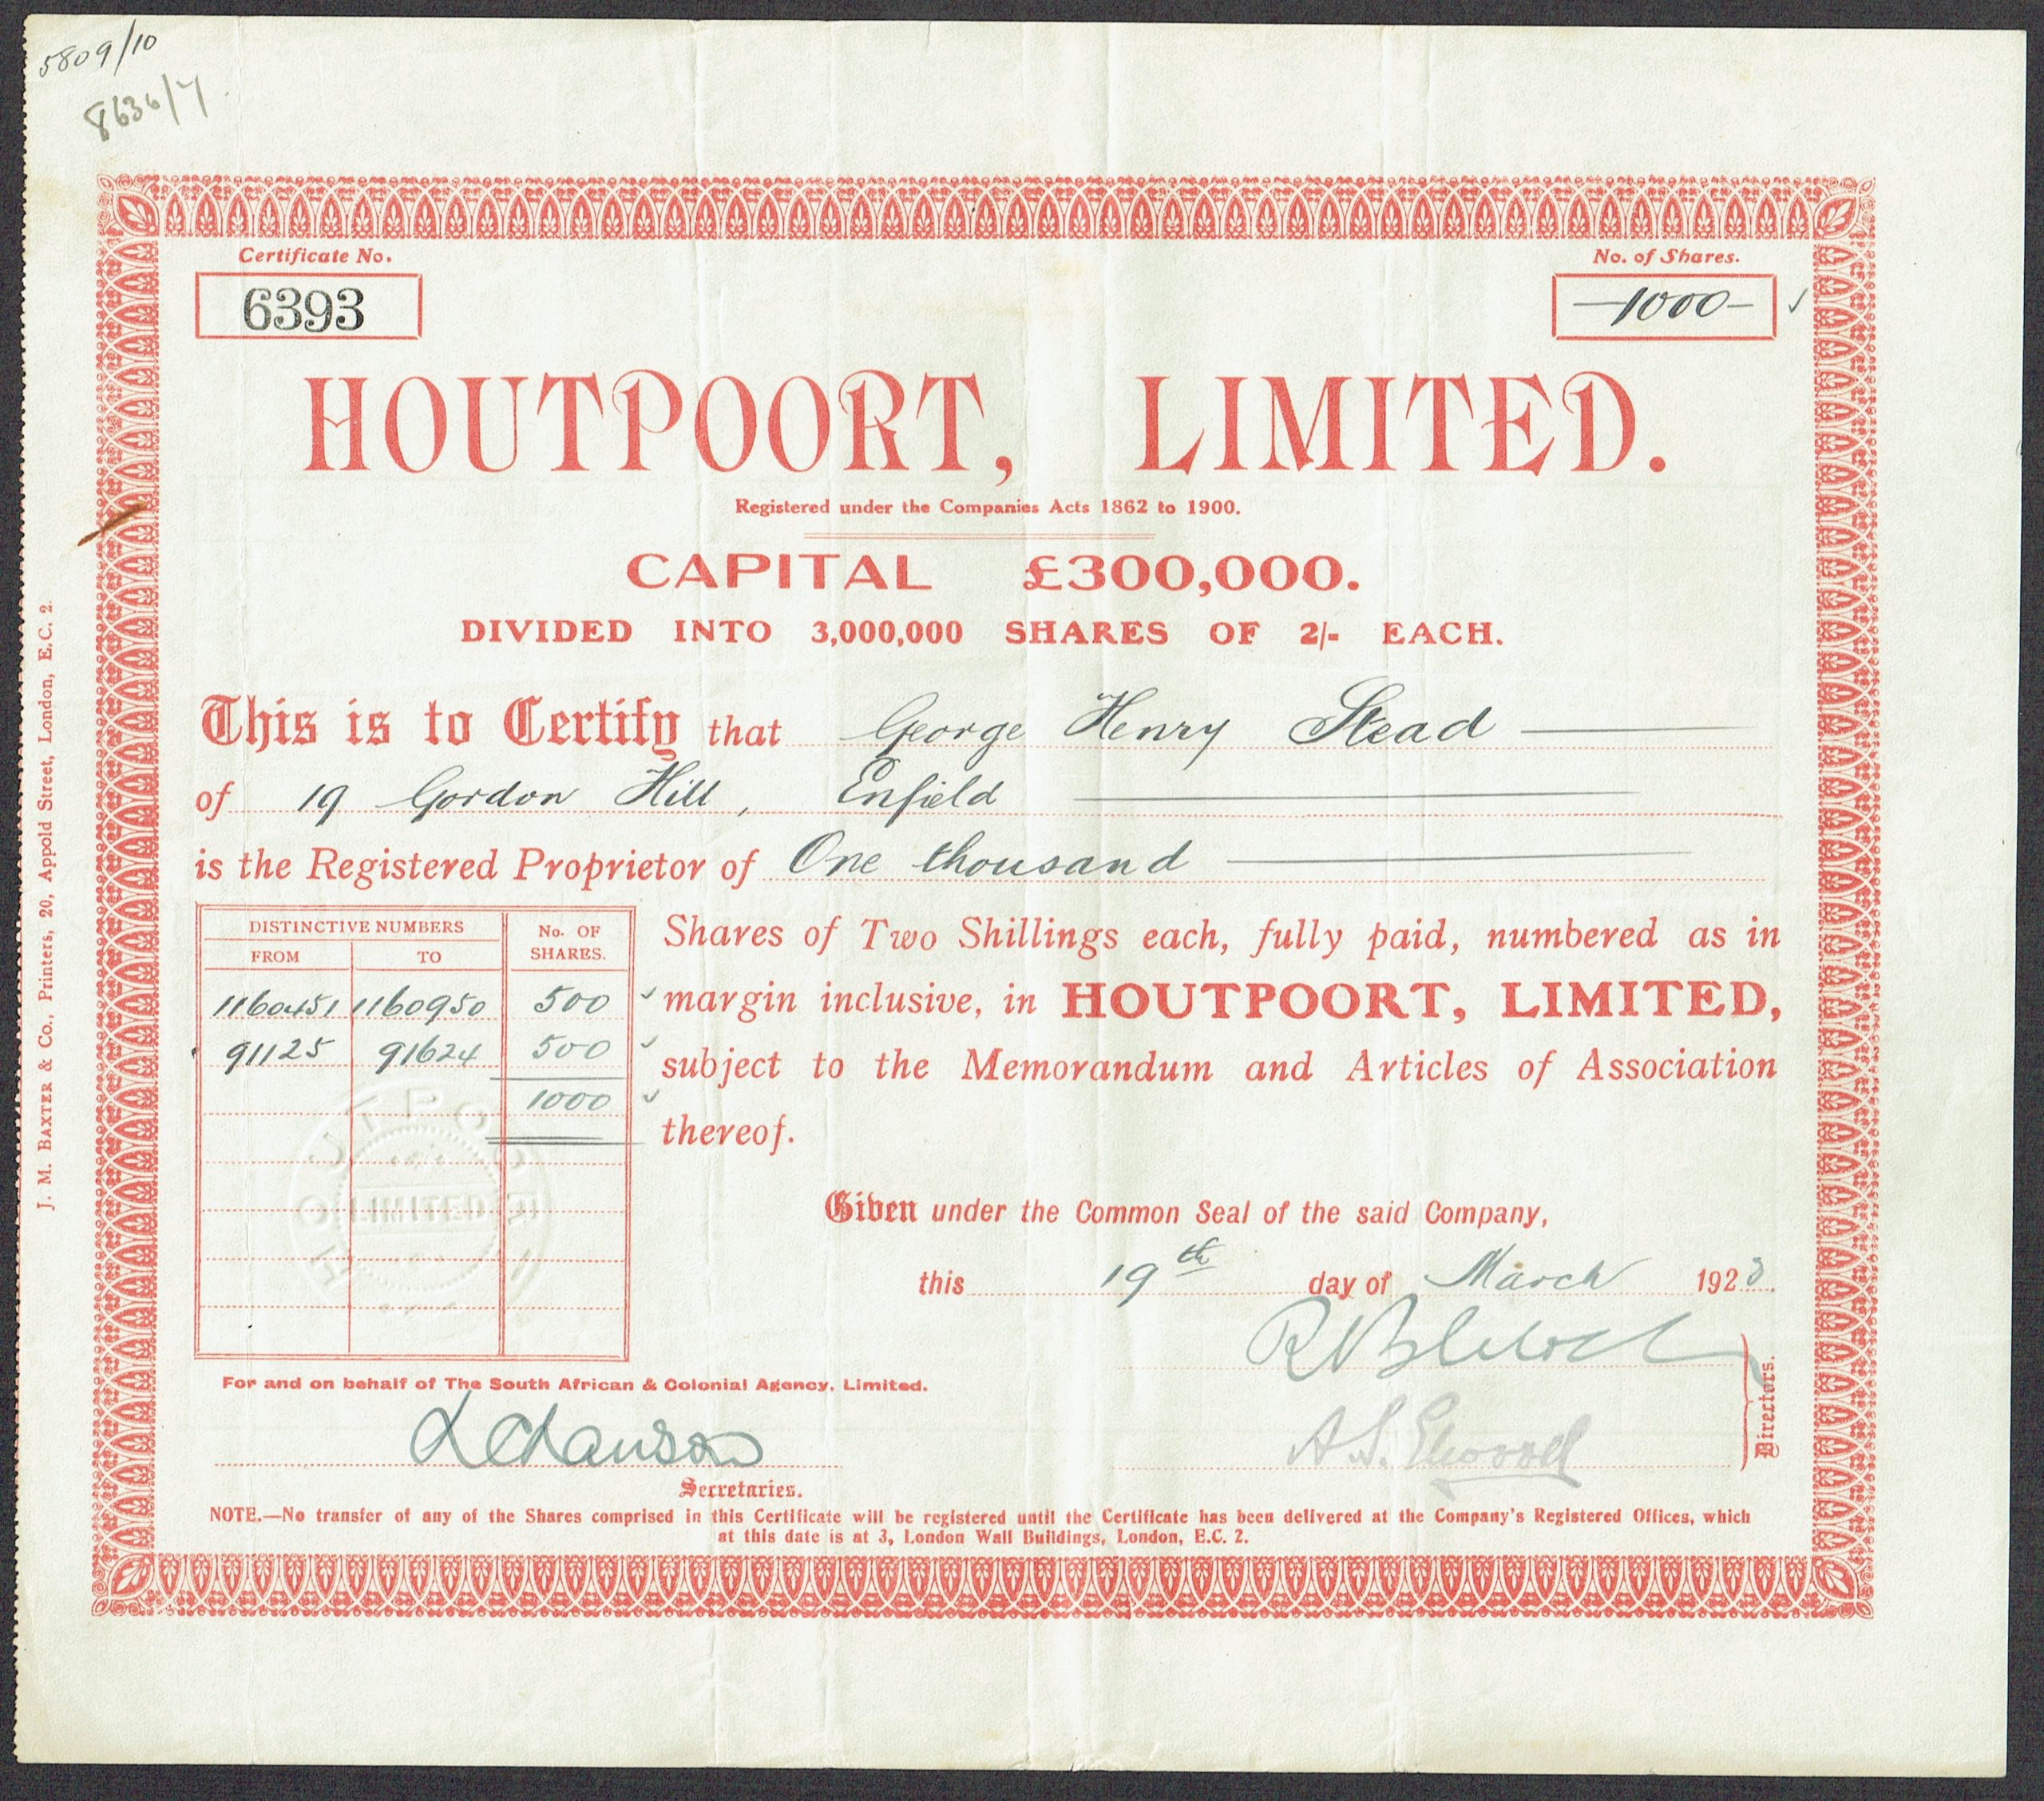 5809/10
8636/7
Certificate No.
6393
No. of Shares.
—1000—
HOUTPOORT, LIMITED.
Registered under the Companies Acts 1862 to 1900.
CAPITAL £300,000.
DIVIDED INTO 3,000,000 SHARES OF 2/- EACH.
This is to Certify that George Henry Stead
of 19 Gordon Hill, Enfield
is the Registered Proprietor of One thousand
DISTINCTIVE NUMBERS No. OF SHARES.
FROM TO
1160451 1160950 500
91125 91624 500
1000
Shares of Two Shillings each, fully paid, numbered as in
margin inclusive, in HOUTPOORT, LIMITED,
subject to the Memorandum and Articles of Association
thereof.
HOUTPOORT
LIMITED
Given under the Common Seal of the said Company,
this 19th day of March 1923.
Directors.
For and on behalf of The South African & Colonial Agency, Limited.
Secretaries.
NOTE.—No transfer of any of the Shares comprised in this Certificate will be registered until the Certificate has been delivered at the Company's Registered Offices, which
at this date is at 3, London Wall Buildings, London, E.C. 2.
J. M. BAXTER & Co., Printers, 20, Appold Street, London, E.C. 2.